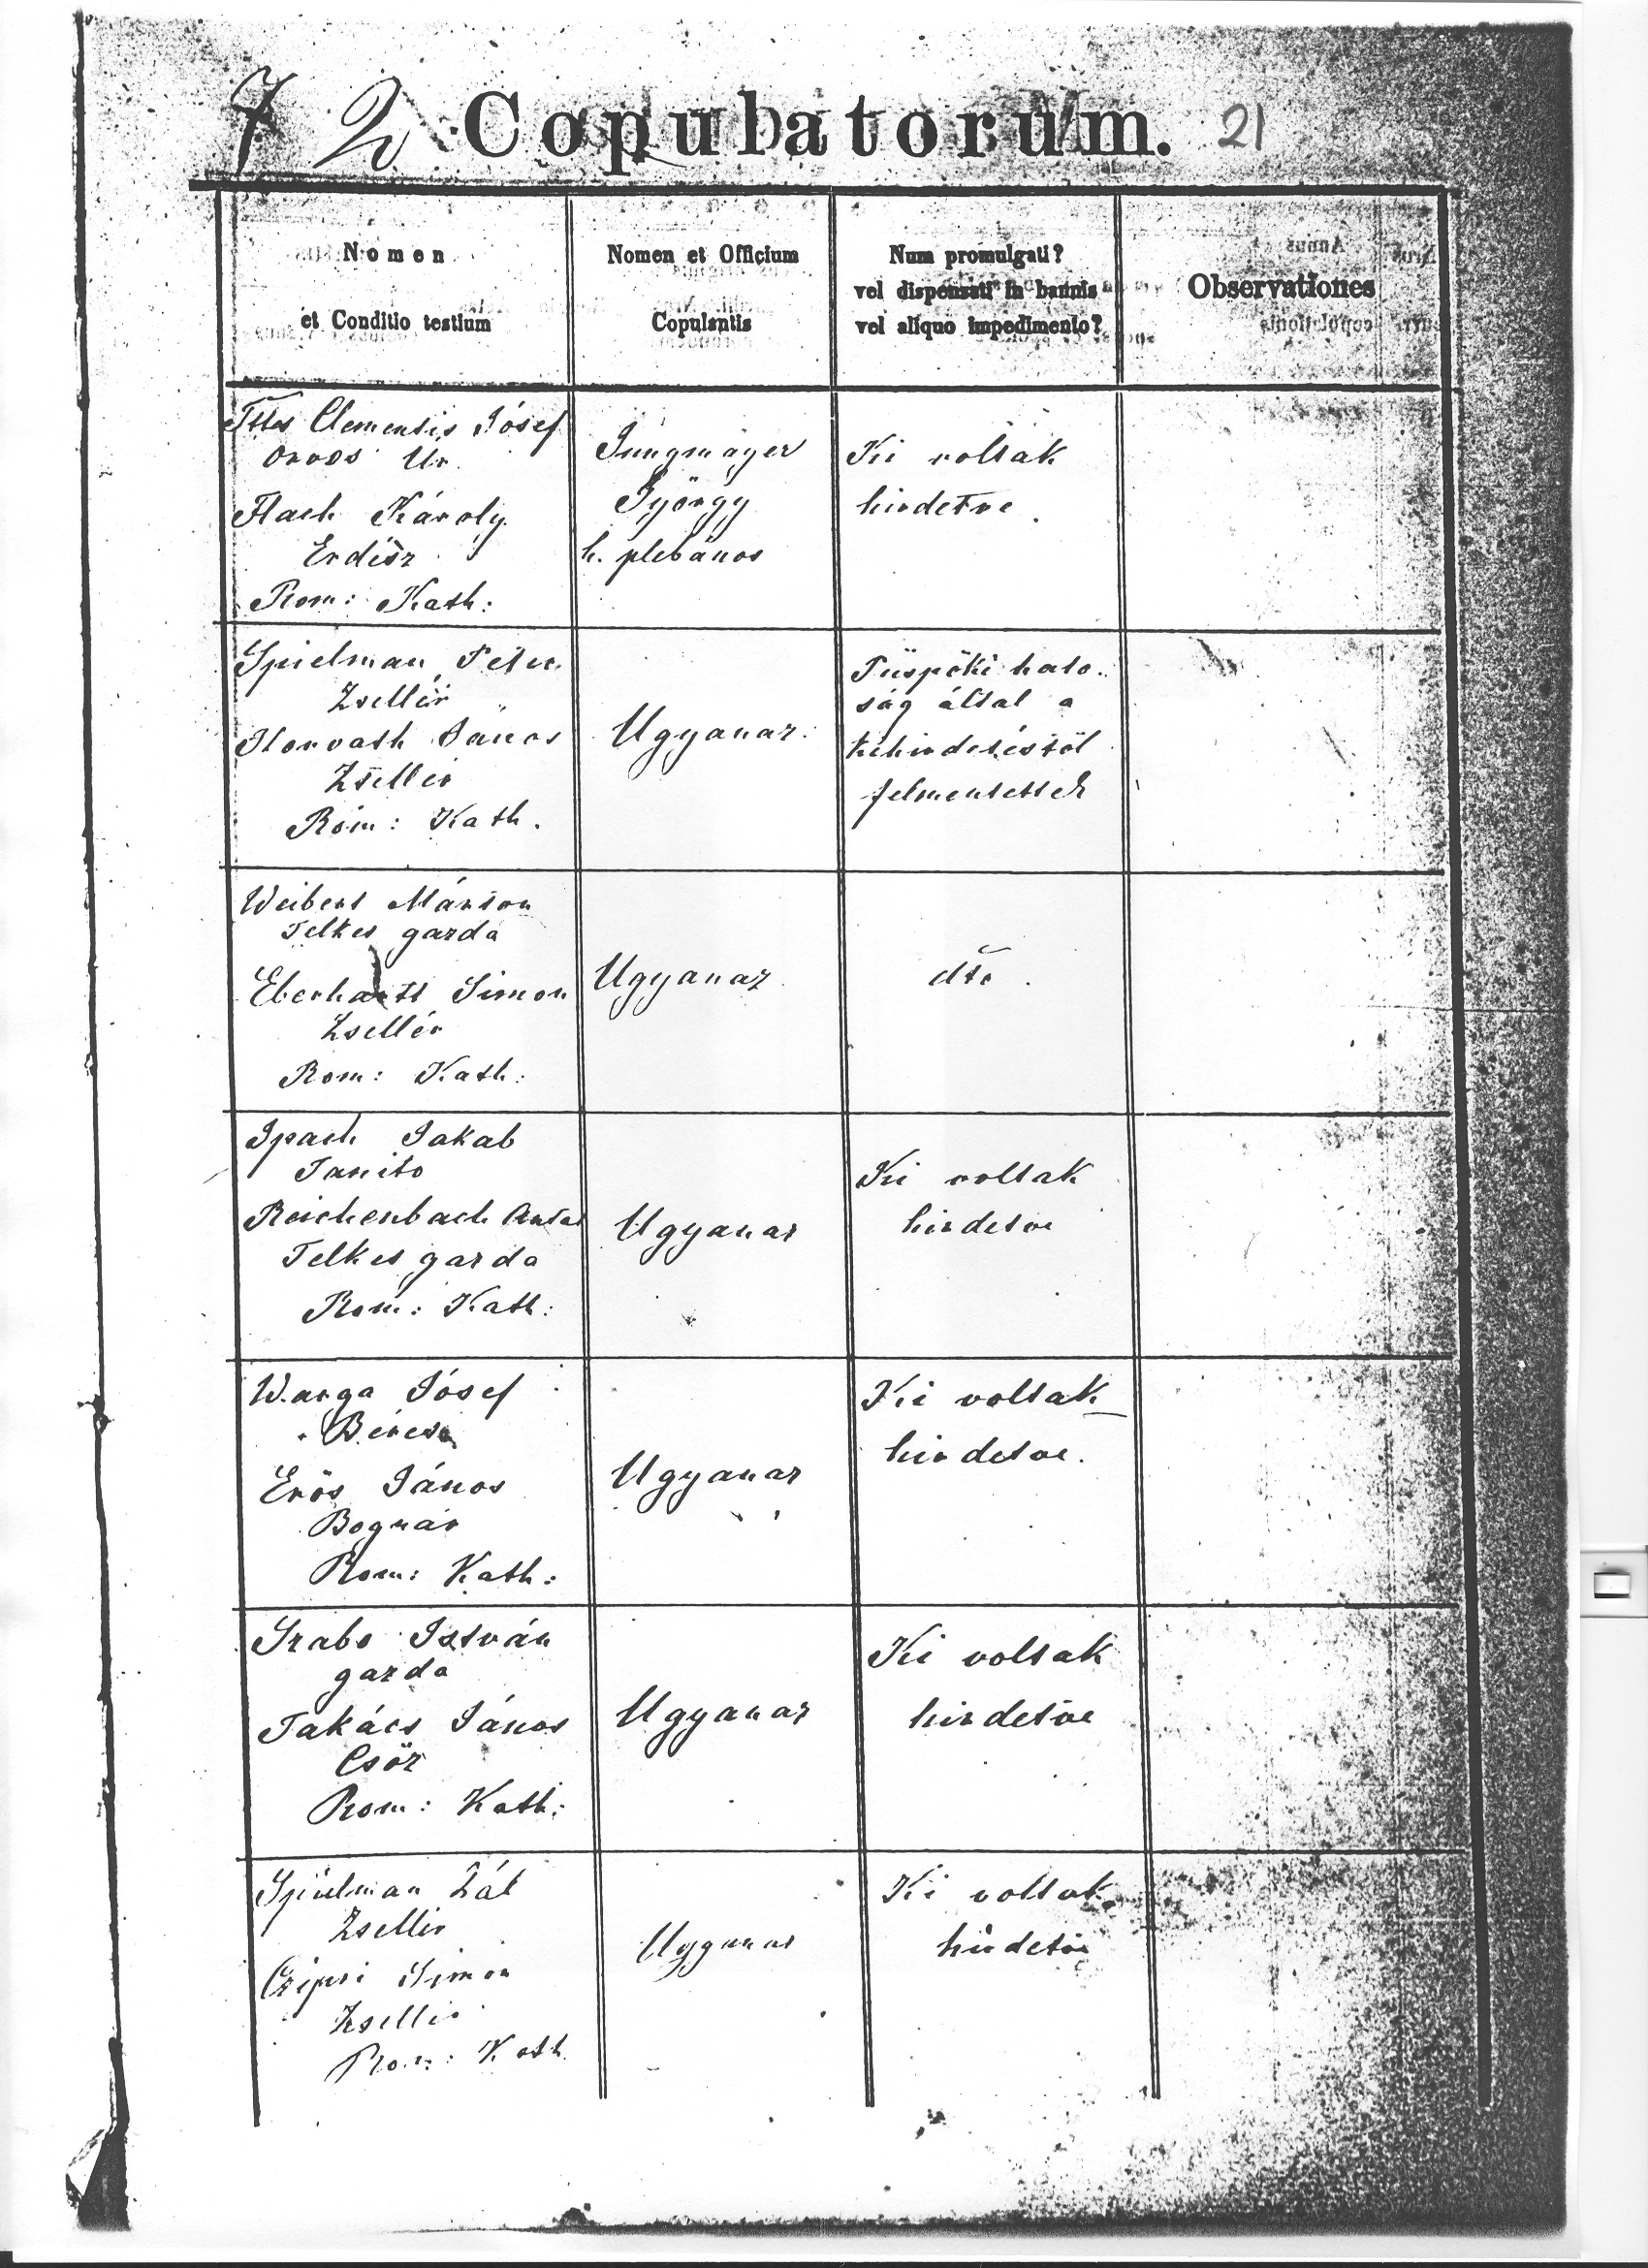 7 2 Copulatorum. 21
Nomen
et Conditio testium
Nomen et Officium
Copulantis
Num promulgati?
vel dispensati in bannis
vel aliquo impedimento?
Observationes
Ttes Clementis Jósef
orvos Úr
Flach Károly
Erdész
Rom: Kath:
Jungmayer
György
h. plebános
Ki voltak
hirdetve.
Spielman Peter
Zsellér
Horvath János
Zsellér
Rom: Kath.
Ugyanaz.
Püspöki hato-
ság által a
kihirdetéstöl
felmentettek
Weibert Márton
Telkes gazda
Eberhardt Simon
Zsellér
Rom: Kath:
Ugyanaz
dto.
Spach Jakab
Tanito
Reichenbach Antal
Telkes gazda
Rom: Kath:
Ugyanaz
Ki voltak
hirdetve
Warga Jósef
Béres
Erös János
Bognár
Rom: Kath:
Ugyanaz
Ki voltak
hirdetve.
Szabo István
gazda
Takács János
Csösz
Rom: Kath:
Ugyanaz
Ki voltak
hirdetve
Spielman Pál
Zsellér
Simon
Zsellér
Rom: Kath
Ugyanaz
Ki voltak
hirdetve